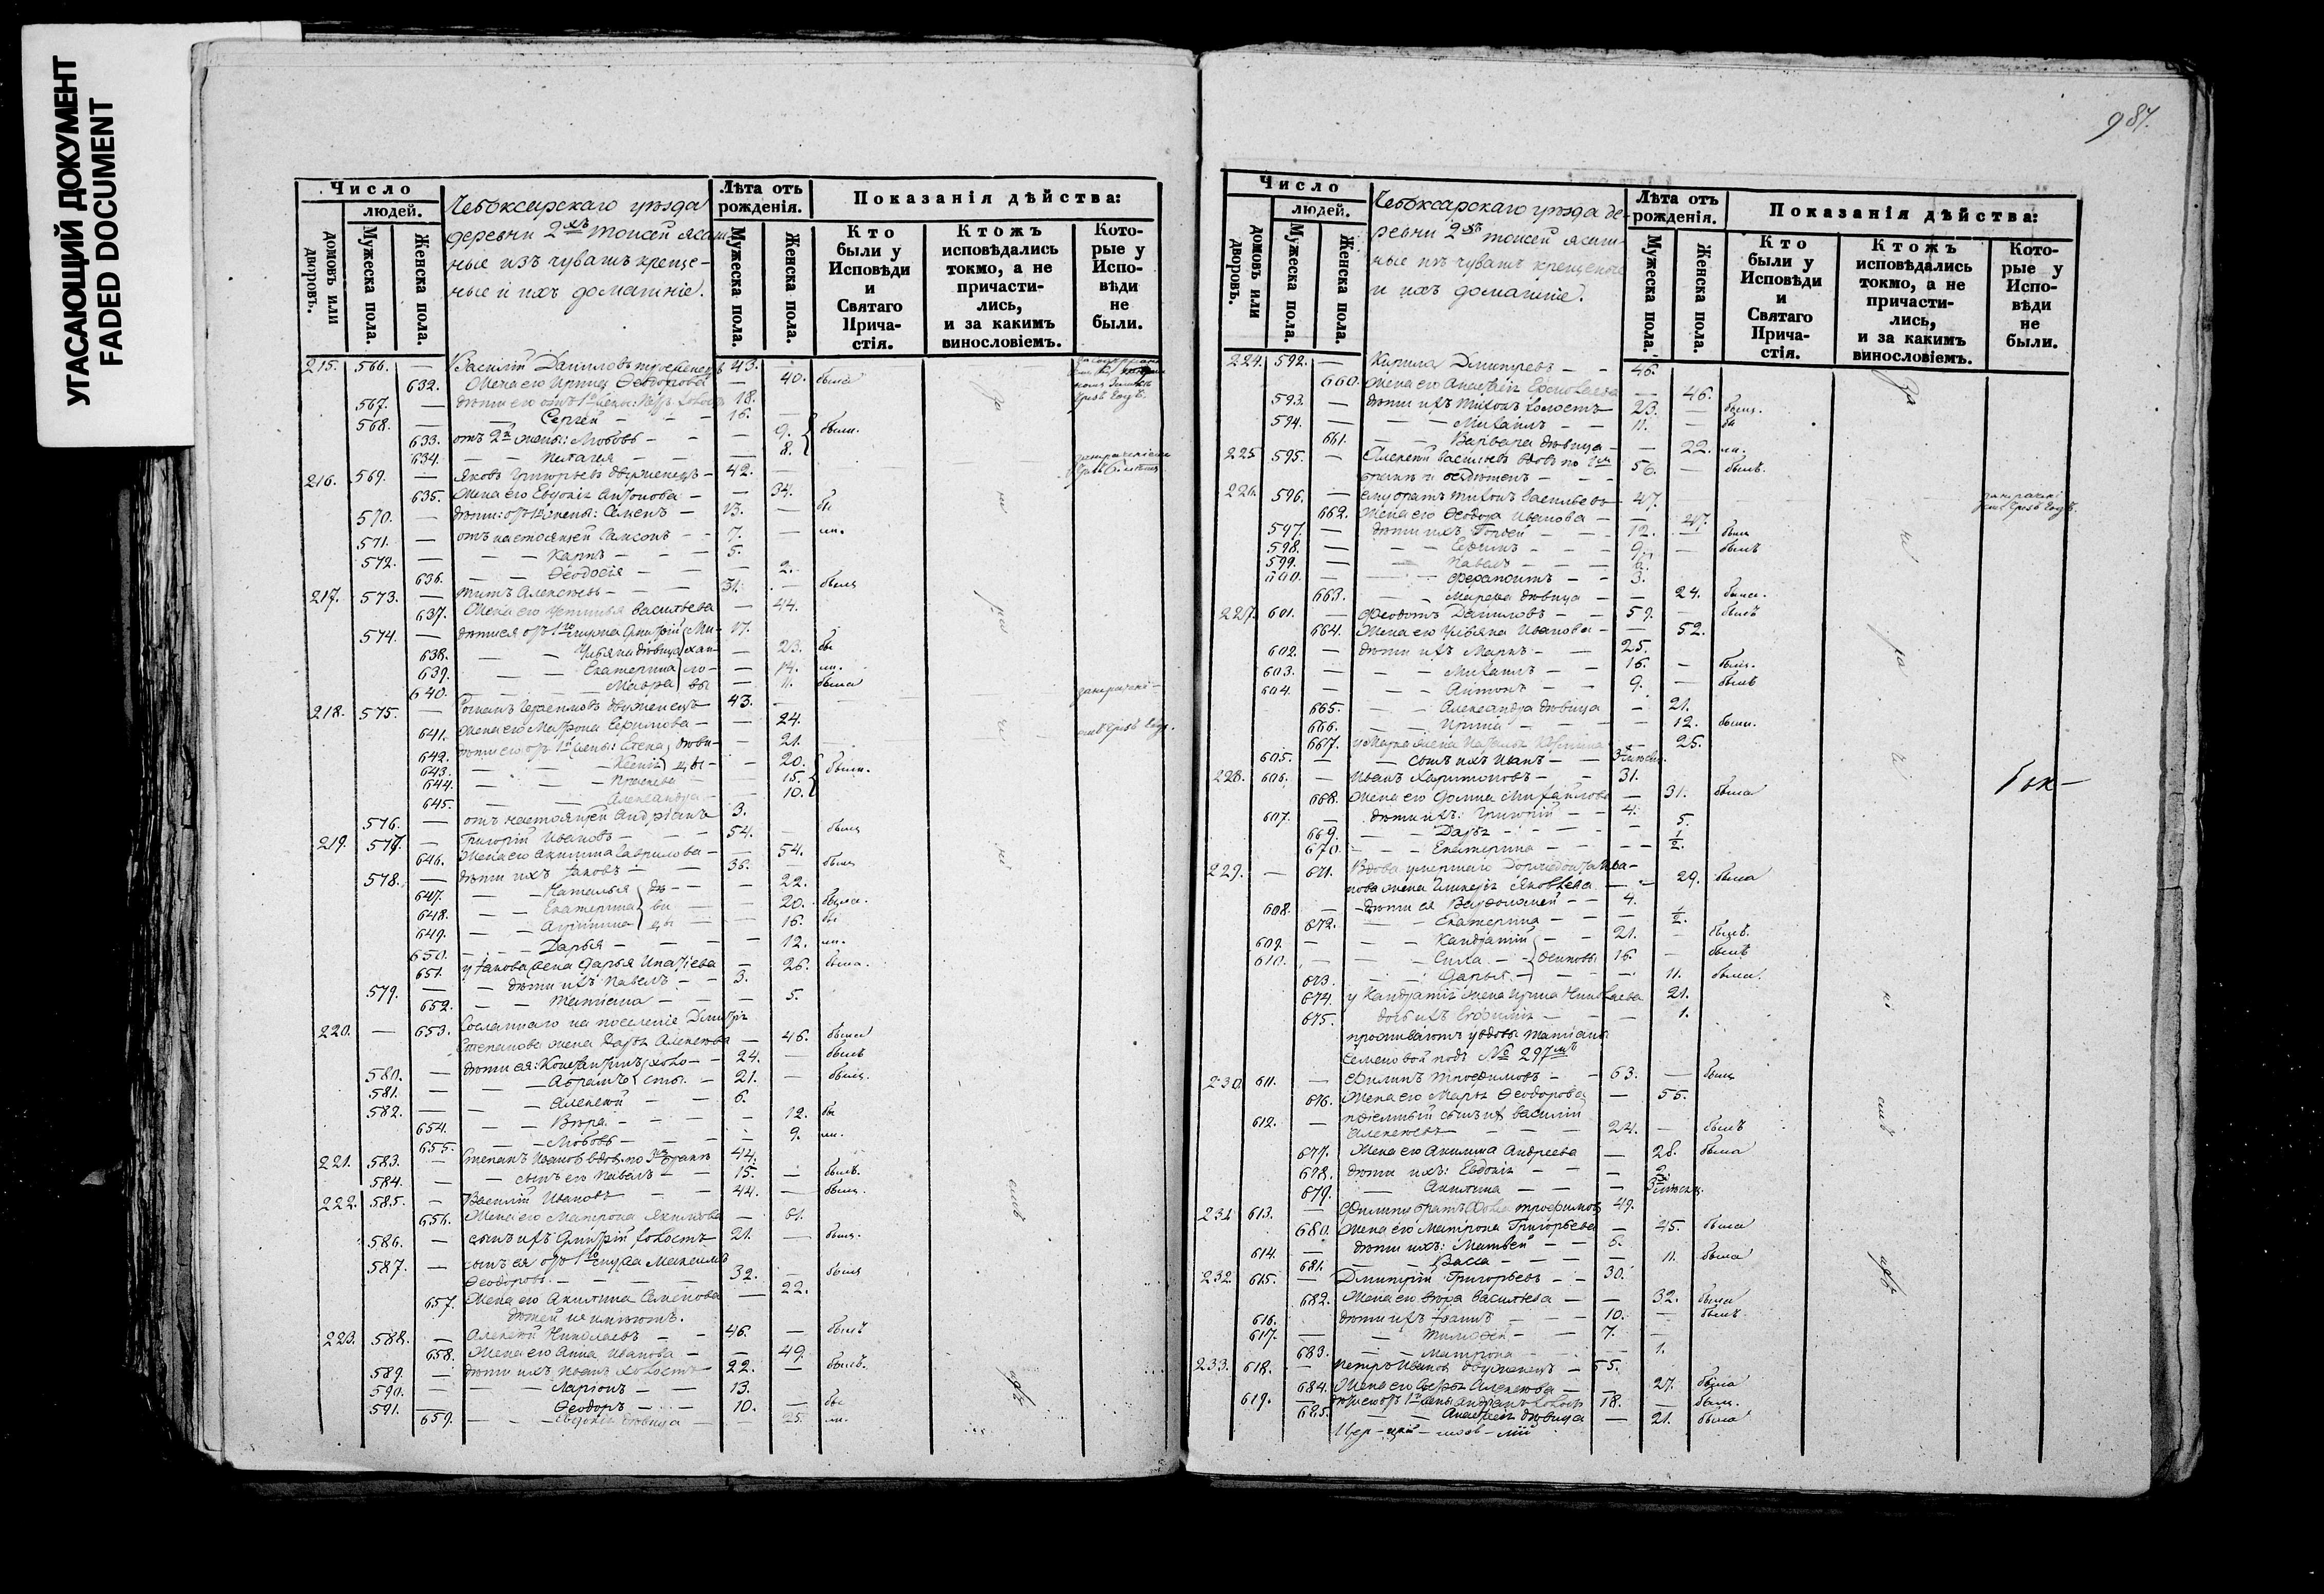 УГАСАЮЩИЙ ДОКУМЕНТ
FADED DOCUMENT
Число
людей.
домовъ или дворовъ.
Мужеска пола.
Женска пола.
Чебоксарскаго уѣзда
деревни 2хъ Тоисей ясаш-
ные изъ чувашъ креще-
ные и ихъ домашніе.
Лѣта отъ рожденія.
Мужеска пола.
Женска пола.
Показанія дѣйства:
Кто были у Исповѣди и Святаго Прича-стія.
Ктожъ исповѣдались токмо, а не причасти-лись, и за какимъ винословіемъ.
Кото-рые у Испо-вѣди не были.
215. 566. — Василій Даниловъ троеженецъ 43. —
632. Жена его Ирина Ѳедорова — 40. была
567. — дѣти его отъ 1й жены: Петръ холостъ 18.
568. — Сергей — 16. —
633. отъ 2й жены: Любовь — — 9. были.
634. — Пелагея — — 8.
216. 569. — Яковъ Григорьевъ двуженецъ — 42. —
635. Жена его Евдокія Антонова — — 34.
570. — дѣти: отъ 1й жены: Семенъ — 13. — бы
571. — отъ настоящей Самсонъ — 7. — ли.
572. — Карпъ — 5.
636. — Ѳеодосія — — 2.
217. 573. — Титъ Алексѣевъ — 31. — былъ
637. Жена его Устинья Васильева — 44.
574. — дѣти ея отъ 1го мужа Дмитрій Ми- 17.
638. — Ульяна дѣвица хай- — 23. бы
639. — Екатерина ло- — 14. ли.
640. — Мавра вы — 11. была
218. 575. — Романъ Герасимовъ двуженецъ 43. —
641. Жена его Матрона Ефимова — — 24.
642. дѣти его отъ 1й жены: Елена дѣви- — 21.
643. — Ксенія цы — — 20.
644. — — 15. были.
645. — Александра — — 10.
576. — отъ настоящей Андріанъ 3.
219. 577. — Григорій Ивановъ — 54. — былъ
646. Жена его Акилина Гаврилова — — 54.
578. — дѣти ихъ Іаковъ — 36. — былъ
647. — Наталья дѣ- — 22.
648. — Екатерина ви — 20. были.
649. — цы — 16. бы
650. — Дарья — — 12. ли.
651. у Іакова жена Дарья Ипатіева — 26. была.
579. — дѣти ихъ Павелъ — 3.
652. — Татіана — — 5.
220. — 653. Сосланнаго на поселеніе Дмитрія
Степанова жена Дарья Алексѣева — 46. была
580. — дѣти ея: Константинъ холо- 24. — былъ
581. — Абрамъ сты. — 21. — былъ.
582. — Алексѣй — 6.
654. — Вѣра — — 12. бы
655. — Любовь — — 9. ли.
221. 583. — Степанъ Ивановъ вдовъ по 3мъ бракѣ 44.
584. — сынъ его Павелъ — 15. — былъ.
222. 585. — Василій Ивановъ — 44. — былъ.
656. Жена его Матрона Якимова — 61.
586. — сынъ ихъ Дмитрій холостъ 21. — былъ.
587. — сынъ ея отъ 1го мужа Максимъ
Ѳеодоровъ. — 32. — былъ
657. Жена его Акилина Семенова — 22.
дѣтей не имѣютъ.
223. 588. — Алексѣй Николаевъ — 46. — былъ
658. Жена его Анна Иванова — — 49.
589. — дѣти ихъ Иванъ холостъ 22. — былъ.
590. — Ларіонъ — 13.
591. — Ѳеодоръ — 10. — бы
659. — Евдокія дѣвица — 25. ли.
987.
Число
людей.
домовъ или дворовъ.
Мужеска пола.
Женска пола.
Чебоксарскаго уѣзда де-
ревни 2хъ Тоисей ясаш-
ные изъ чувашъ крещеные
и ихъ домашніе.
Лѣта отъ рожденія.
Мужеска пола.
Женска пола.
Показанія дѣйства:
Кто были у Исповѣди и Святаго Прича-стія.
Ктожъ исповѣдались токмо, а не причасти-лись, и за какимъ винословіемъ.
Кото-рые у Испо-вѣди не были.
224. 592. — Кирила Димитріевъ — 46.
660. Жена его Анастасія — 46.
593. — дѣти ихъ Тихонъ холостъ 23. — былъ.
594. — Михаилъ — 11. —
661. — Варвара дѣвица — — 22. ли.
225 595. — Алексѣй Васильевъ вдовъ по 1мъ
бракѣ и бездѣтенъ — 56. — былъ.
226. 596. — ему братъ Тихонъ Васильевъ 47.
662. Жена его Ѳеодора Иванова — — 47.
597. — дѣти ихъ Гордей — 12. — былъ
598. — Ефимъ — 9. — былъ
599. — Павелъ — 6.
600. — Ферапонтъ — 3.
663. — Марфа дѣвица — — 24. была.
227. 601. — Ѳеодотъ Даниловъ — 59. — былъ
664. Жена его Ульяна Иванова — — 52.
602. — дѣти ихъ Маркъ — 25.
603. — Михаилъ — 16. — былъ.
604. — Антонъ — 9. — былъ
665. — Александра дѣвица — 21.
666. — Ирина — — 12. были.
667. у Марка жена Наталья — 25.
605. — сынъ ихъ Иванъ — 3 мѣсяц.
228. 606. — Иванъ Харитоновъ — 31.
668. Жена его Домна Михайлова — 31. была
607. — дѣти ихъ: Григорій — 4.
669. — Дарья — — 5.
670. — Екатерина — — ½.
229. — 671. Вдова умершаго Ива-
нова жена Гликерія Яковлева — 29. была
608. — дѣти ея Варѳоломей — 4.
672. — Екатерина — — ½.
609. — Кандратій — 21. — былъ.
610. — Сила — Осиповы 16. — былъ
673. — Дарья — — 11. была.
674. у Кандратія жена Ирина Николаева 21.
675. дочь ихъ Евфимія — — 1.
проживаютъ у вдовы Татіаны
Семеновой подъ № 297мъ
230. 611. — Филипъ Трофимовъ — 63. — былъ
676. Жена его Марья Ѳеодорова — 55.
612. — пріемный сынъ ихъ Василій
Алексѣевъ — 24. — былъ
677. Жена его Акилина Андреева — 28. была
678. дѣти ихъ: Евдокія — — 2.
679. — Акилина — — 3 мѣсяц.
231 613. — Филипу братъ Ѳома Трофимовъ 49.
680. Жена его Матрона Григорьева — 45. была
614. — дѣти ихъ: Матвей — 6.
681. — Васса — — 11. была
232. 615. — Димитрій Григорьевъ — 30.
682. Жена его Вѣра Васильева — — 32. была
616. — дѣти ихъ Іоаннъ — 10. — былъ.
617. — Тимоѳей — 7. —
683. — Матрона — 1.
233. 618. — Петръ Ивановъ двуженецъ — 55.
684. Жена его Дарья Алексѣева — 27. была
619. — дѣти его отъ 1й жены Андріанъ холостъ 18. — былъ.
685. — Анастасія дѣвица — 21. была